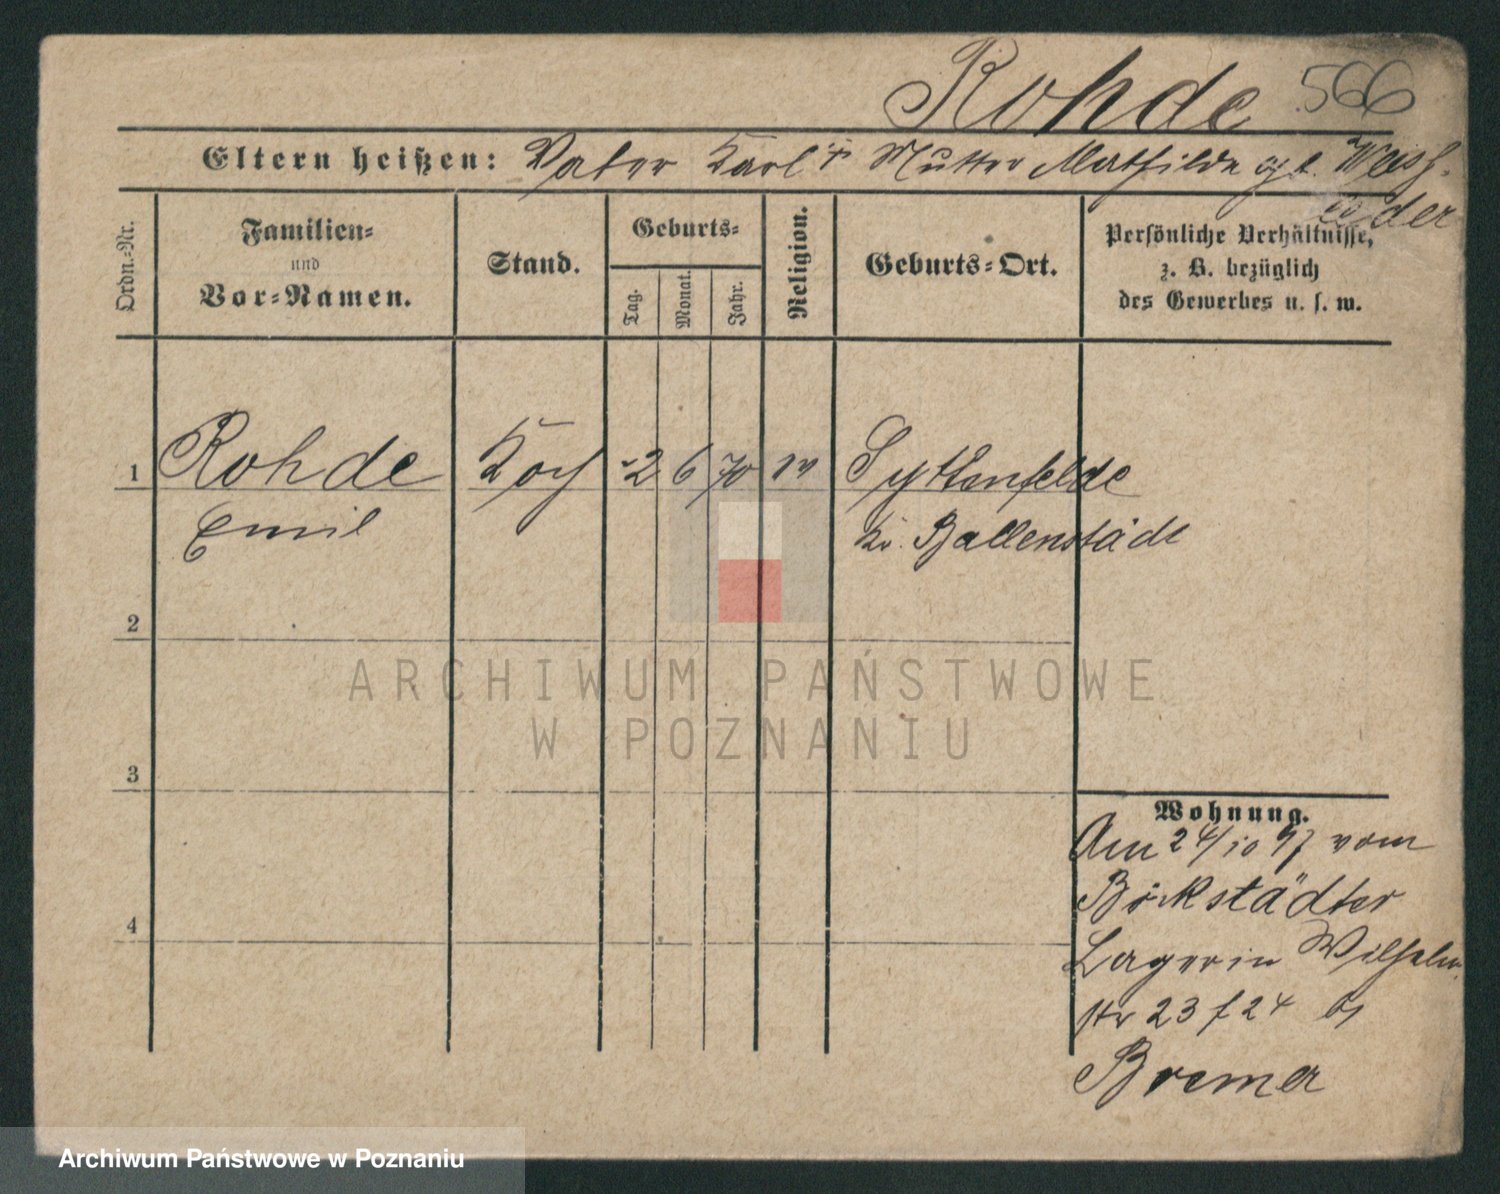 Rohde 566
Eltern heißen: Vater Karl † Mutter Mathilde geb. Weish-
Ordn.-Nr.
Familien-
und
Vor-Namen.
Stand.
Geburts-
Tag.
Monat.
Jahr.
Religion.
Geburts-Ort.
Persönliche Verhältnisse,
z. B. bezüglich
des Gewerbes u. s. w.
1 Rohde Koch 2 6 70 ev
Emil Kr. Ballenstädt
2
ARCHIWUM PAŃSTWOWE
W POZNANIU
3
Wohnung.
Am 24/10 97 vom
städter
Lager in Wilhelm
str 23/24 by
Bremer
4
Archiwum Państwowe w Poznaniu